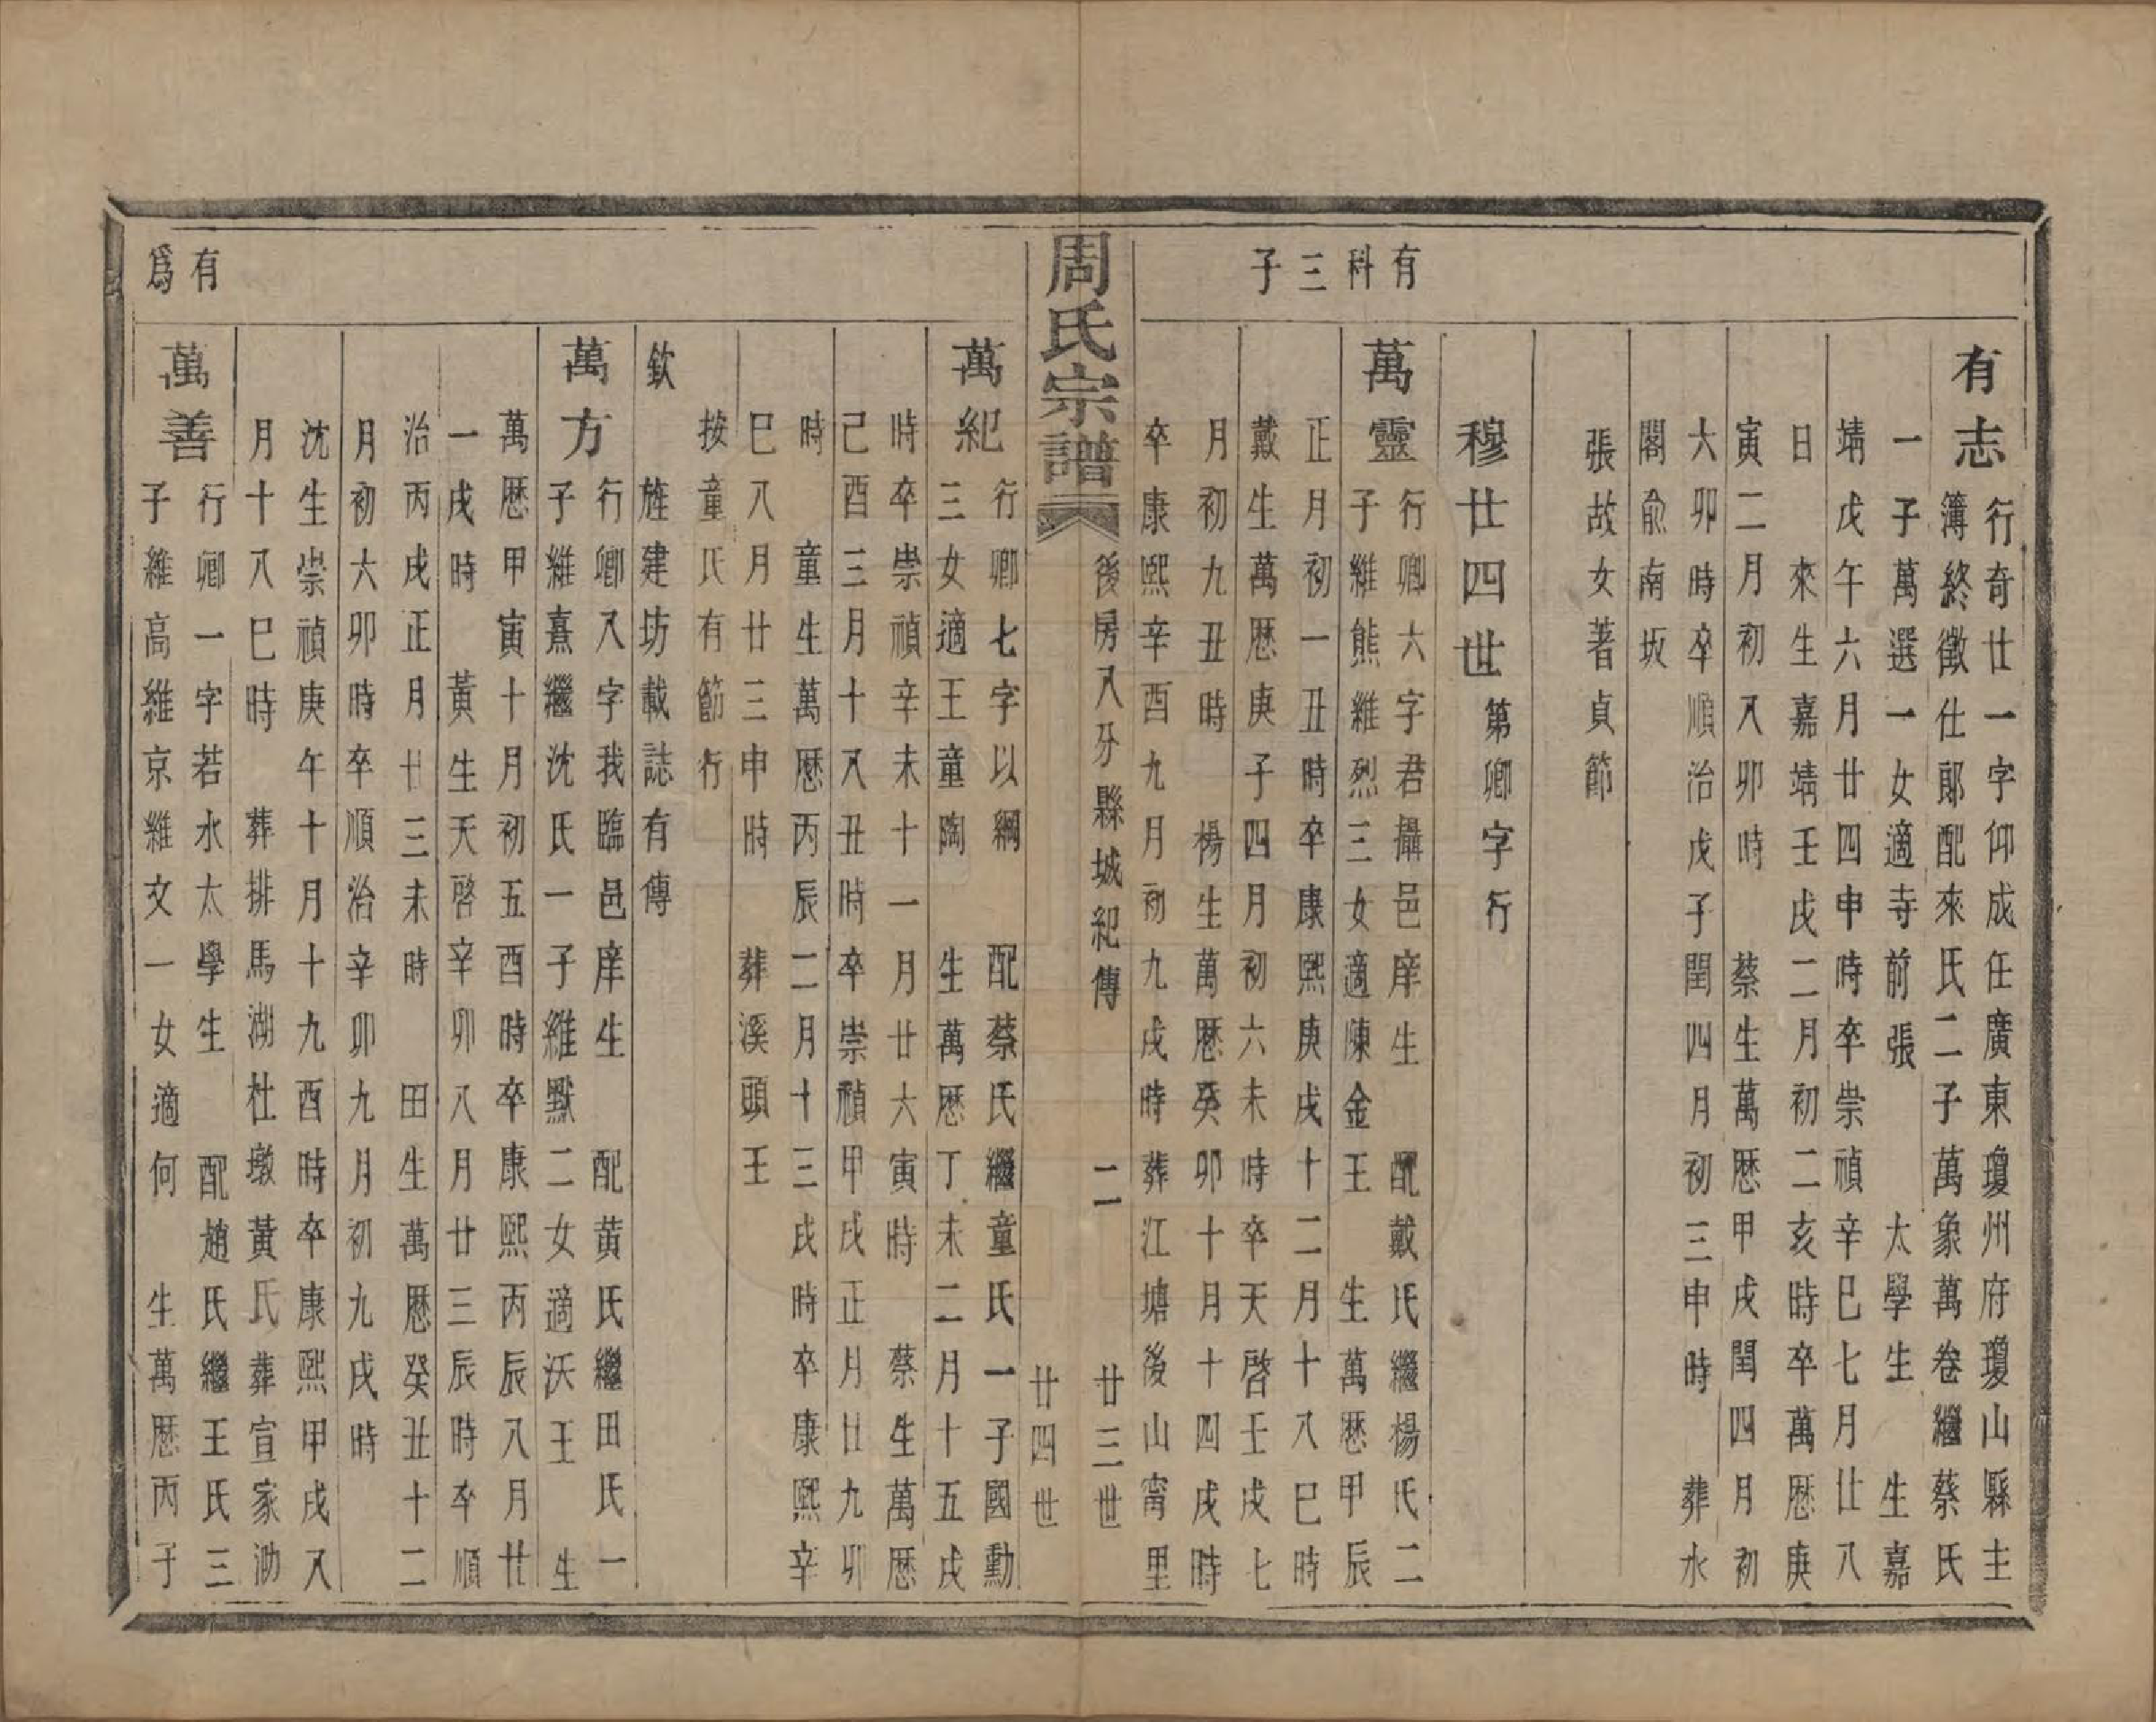 有志
行奇廿一字仰成任廣東瓊州府瓊山縣主
簿終徵仕郎配來氏二子萬象萬卷繼蔡氏
一子萬選一女適寺前張 太學生 生嘉
靖戊午六月廿四申時卒崇禎辛巳七月廿八
日 來生嘉靖壬戌二月初二亥時卒萬歷庚
寅二月初八卯時 蔡生萬歷甲戌閏四月初
六卯時卒順治戊子閏四月初三申時 葬水
閣俞南坂
張故女著貞節
穆廿四世 第卿字行
有科三子
萬靈
行卿六字君攝邑庠生 配戴氏繼楊氏二
子維熊維烈三女適陳金王 生萬歷甲辰
正月初一丑時卒康熙庚戌十二月十八巳時
戴生萬歷庚子四月初六未時卒天啓壬戌七
月初九丑時 楊生萬歷癸卯十月十四戌時
卒康熙辛酉九月初九戌時葬江塘後山甯里
周氏宗譜 後房八分縣城紀傳 二 廿三世
廿四世
萬紀
行卿七字以綱 配蔡氏繼童氏一子國勳
三女適王童陶 生萬歷丁未二月十五戌
時卒崇禎辛未十一月廿六寅時 蔡生萬歷
己酉三月十八丑時卒崇禎甲戌正月廿九卯
時 童生萬歷丙辰二月十三戌時卒康熙辛
巳八月廿三申時 葬溪頭王
按童氏有節行
欽旌建坊載誌有傳
萬方
行卿八字我臨邑庠生 配黃氏繼田氏一
子維熹繼沈氏一子維默二女適沃王 生
萬歷甲寅十月初五酉時卒康熙丙辰八月廿
一戌時 黃生天啓辛卯八月廿三辰時卒順
治丙戌正月廿三未時 田生萬歷癸丑十二
月初六卯時卒順治辛卯九月初九戌時
沈生崇禎庚午十月十九酉時卒康熙甲戌八
月十八巳時 葬排馬湖杜墩黃氏葬宣家泐
有爲
萬善
行卿一字若水太學生 配趙氏繼王氏三
子維高維京維文一女適何 生萬歷丙子